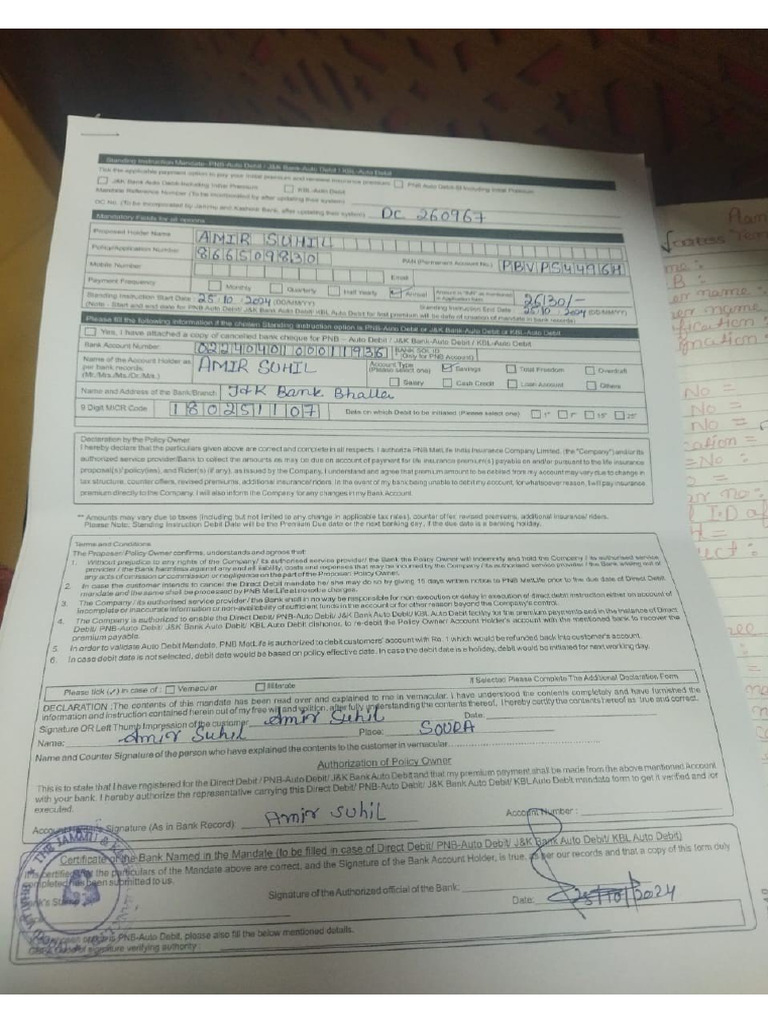 Standing Instruction Mandate- PNB-Auto Debit / J&K Bank-Auto Debit / KBL-Auto Debit
Tick the applicable payment option to pay your initial premium and renewal insurance premium
PNB Auto Debit-SI Including Initial Premium
J&K Bank Auto Debit-Including Initial Premium
KBL-Auto Debit
Mandate Reference Number (To be incorporated by after updating their system)
DC No. (To be incorporated by Jammu and Kashmir Bank, after updating their system) DC 260967
Mandatory Fields for all
Proposed Holder Name AMIR SUHIL
Policy/Application Number 866509830 PAN (Permanent Account No.)
Mobile Number Email
Payment Frequency Monthly Quarterly Half Yearly Annual 26130/-
Standing Instruction Start Date: 25.10.2024 (DD/MM/YY) Standing Instruction End Date: 25.10. (DD/MM/YY)
(Note - Start and end date for PNB-Auto Debit/ J&K Bank Auto Debit/ KBL Auto Debit for first premium will be date of creation of mandate in bank records)
Please fill the following information if the chosen Standing Instruction option is PNB-Auto Debit or J&K Bank-Auto Debit or KBL-Auto Debit
Yes, I have attached a copy of cancelled bank cheque for PNB – Auto Debit / J&K Bank-Auto Debit / KBL-Auto Debit
Bank Account Number: BANK SOL ID (Only for PNB Account)
Name of the Account Holder as per bank records: (Mr./Mrs./Ms./Dr./Mrs.) AMIR SUHIL
Account Type (Please select one) Savings Total Freedom Overdraft
Salary Cash Credit Loan Account Others
Name and Address of the Bank/Branch: J&K Bank
9 Digit MICR Code 180251107 Date on which Debit to be initiated (Please select one)
Declaration by the Policy Owner
I hereby declare that the particulars given above are correct and complete in all respects. I authorize PNB MetLife India Insurance Company Limited, (the "Company") and/or its
authorized service provider/Bank to collect the amounts as may be due on account of payment for life insurance premiums) payable on and/or pursuant to the life insurance
proposal(s)/ policy(ies), and Rider(s) (if any), as issued by the Company. I understand and agree that premium amount to be debited from my account may vary due to change in
tax structure, counter offers, revised premiums, additional insurance/ riders. In the event of my bank being unable to debit my account, for whatsoever reason, I will pay insurance
premium directly to the Company. I will also inform the Company for any changes in my Bank Account.
** Amounts may vary due to taxes (including but not limited to any change in applicable tax rates), counter offer, revised premiums, additional insurance/ riders.
Please Note: Standing Instruction Debit Date will be the Premium Due date or the next banking day, if the due date is a banking holiday.
Terms and Conditions
The Proposer/ Policy Owner confirms, understands and agrees that:
1. Without prejudice to any rights of the Company/ its authorised service provider/ the Bank the Policy Owner will indemnify and hold the Company / its authorised service
provider / the Bank harmless against any and all liability, costs and expenses that may be incurred by the Company/ its authorised service provider / the Bank arising out of
any acts of omission or commission or negligence on the part of the Proposer/ Policy Owner.
2. In case the customer intends to cancel the Direct Debit mandate he/ she may do so by giving 15 days written notice to PNB MetLife prior to the due date of Direct Debit
mandate and the same shall be processed by PNB MetLife at no extra charges.
3. The Company / its authorised service provider/ the Bank shall in no way be responsible for non-execution or delay in execution of direct debit instruction either on account of
Incomplete or inaccurate information or non-availability of sufficient funds in the account or for other reason beyond the Company's control.
4. The Company is authorized to enable the Direct Debit/ PNB-Auto Debit/ J&K Bank-Auto Debit/ KBL Auto Debit facility for the premium payments and in the instance of Direct
Debit/ PNB-Auto Debit/ J&K Bank-Auto Debit/ KBL Auto Debit dishonor, to re-debit the Policy Owner/ Account Holder's account with the mentioned bank to recover the
premium payable.
5. In order to validate Auto Debit Mandate, PNB MetLife is authorized to debit customers' account with Re. 1 which would be refunded back into customer's account.
6. In case debit date is not selected, debit date would be based on policy effective date. In case the debit date is a holiday, debit would be initiated for next working day.
Please tick (✓) in case of : Vernacular Illiterate If Selected Please Complete The Additional Declaration Form
DECLARATION :The contents of this mandate has been read over and explained to me in vernacular. I have understood the contents completely and have furnished the
information and instruction contained herein out of my free will and volition, after fully understanding the contents thereof. I hereby certify the contents hereof as true and correct.
Signature OR Left Thumb Impression of the customer: Amir Suhil Date:
Name: Amir Suhil Place: SOURA
Name and Counter Signature of the person who have explained the contents to the customer in vernacular
Authorization of Policy Owner
This is to state that I have registered for the Direct Debit/ PNB-Auto Debit/ J&K Bank-Auto Debit and that my premium payment shall be made from the above mentioned Account
with your bank. I hereby authorize the representative carrying this Direct Debit/ PNB-Auto Debit/ J&K Bank-Auto Debit/ KBL Auto Debit mandate form to get it verified and /or
executed.
Signature (As in Bank Record): Amir Suhil Account Number :
Certificate of the Bank Named in the Mandate (to be filled in case of Direct Debit/ PNB-Auto Debit/ J&K Bank-Auto Debit/ KBL Auto Debit)
certified that the particulars of the Mandate above are correct, and the Signature of the Bank Account Holder, is true, as per our records and that a copy of this form duly
completed has been submitted to us.
Signature of the Authorized official of the Bank:
Bank's Date: 25/10/2024
PNB-Auto Debit, please also fill the below mentioned details.
of signature verifying authority :